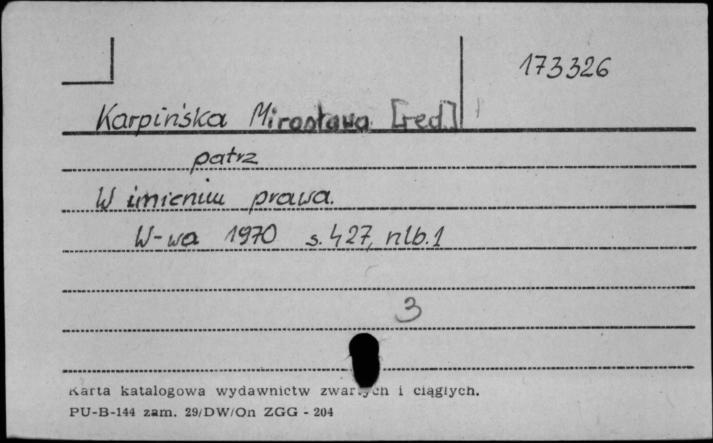 173326
Karpińska Mirosława [red.]
patrz
W imieniu prawa.
W-wa 1970 s. 427, nlb. 1
3
Karta katalogowa wydawnictw zwartych i ciągłych.
PU-B-144 zam. 29/DW/On ZGG - 204